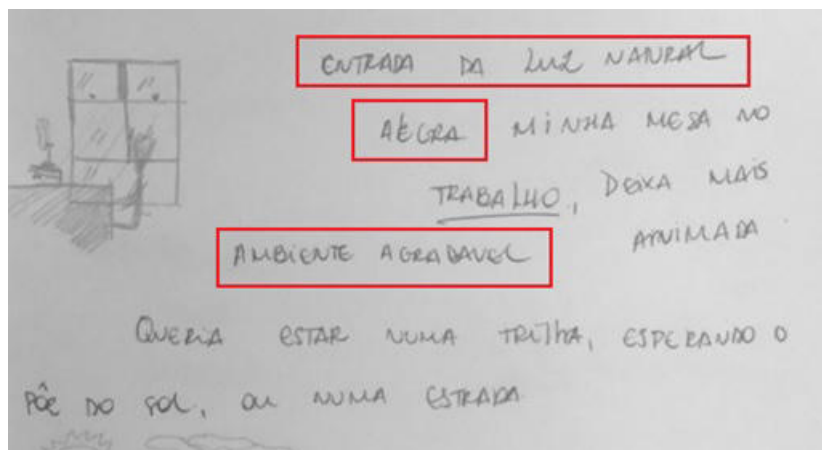 ENTRADA DA LUZ NANRAL
ALEGRA MINHA MESA NO
TRABALHO, DEIXA MAIS
ANIMADA
AMBIENTE AGRADAVEL
QUERIA ESTAR NUMA TRILHA, ESPERANDO O
PÔE DO SOL, OU NUMA ESTRADA